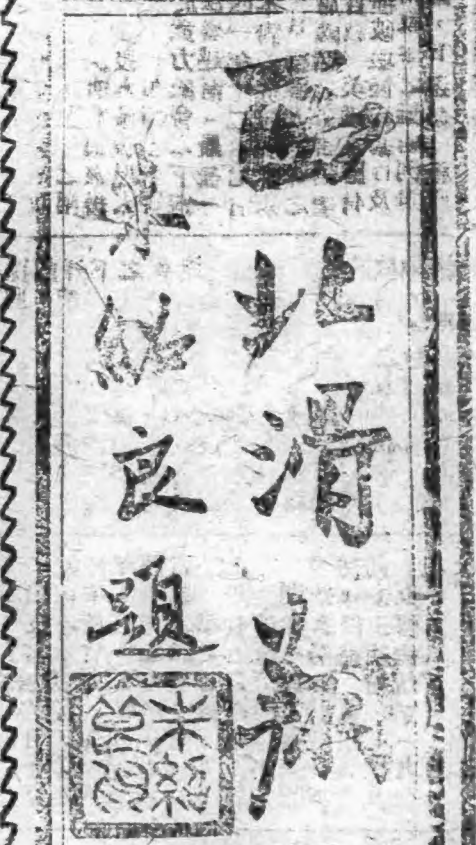 西北滑翔
朱紹良題
朱紹
良印